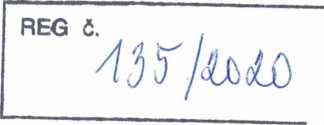 REG č.
135/2020